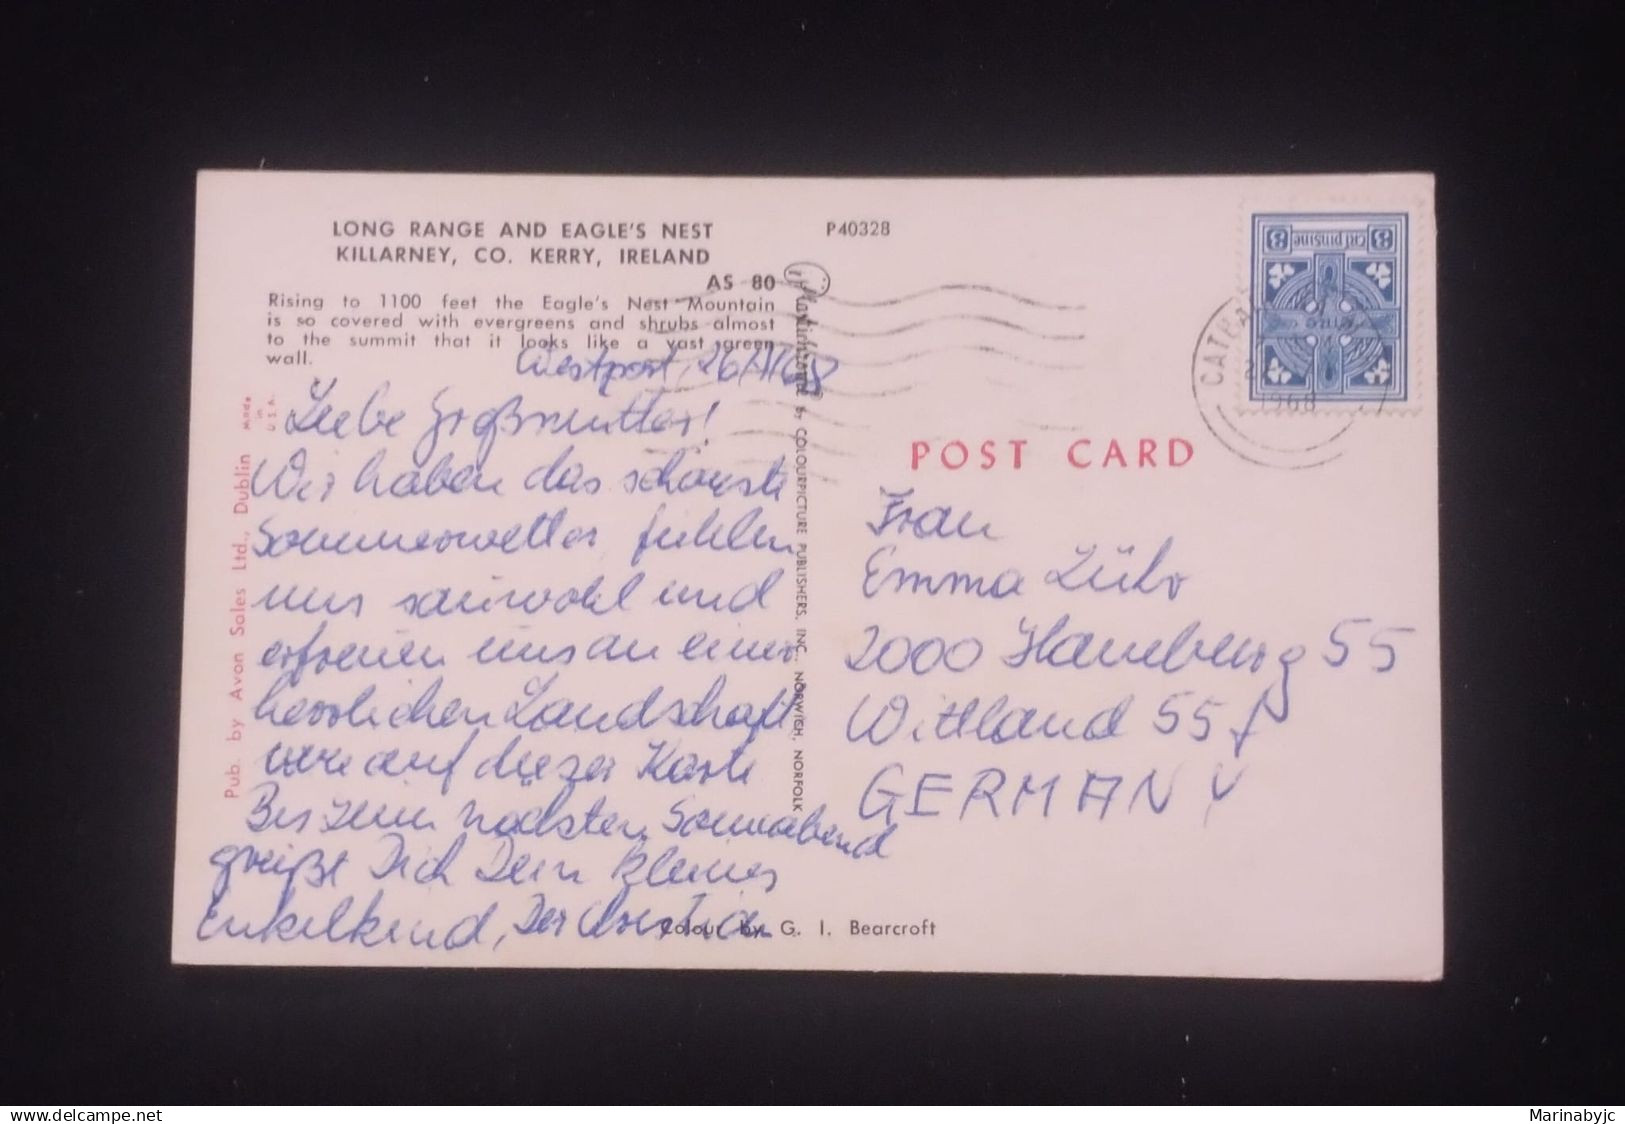 LONG RANGE AND EAGLE'S NEST
KILLARNEY, CO. KERRY, IRELAND
AS 80
Rising to 1100 feet the Eagle's Nest Mountain
is so covered with evergreens and shrubs almost
to the summit that it looks like a vast green
wall.
Westport, 26/VI/68
Liebe Großmutter!
Wir haben das schönste
Sommerwetter, fühlen
uns sauwohl und
erfreuen uns an einer
herrlichen Landschaft
wie auf dieser Karte
Bis zum nächsten Sonnabend
grüßt Dich Dein kleines
Enkelkind, Der Christian
Colour by G. I. Bearcroft
Pub. by Avon Sales Ltd., Dublin
Made
in
U.S.A.
Plastichrome by COLOURPICTURE PUBLISHERS, INC., NORWICH, NORFOLK
P40328
3 Trí pinsine 3
ÉIRE
1968
POST CARD
Frau
Emma Lühr
2000 Hamburg 55
Wittland 55 f
GERMANY
www.delcampe.net
Marinabyjc